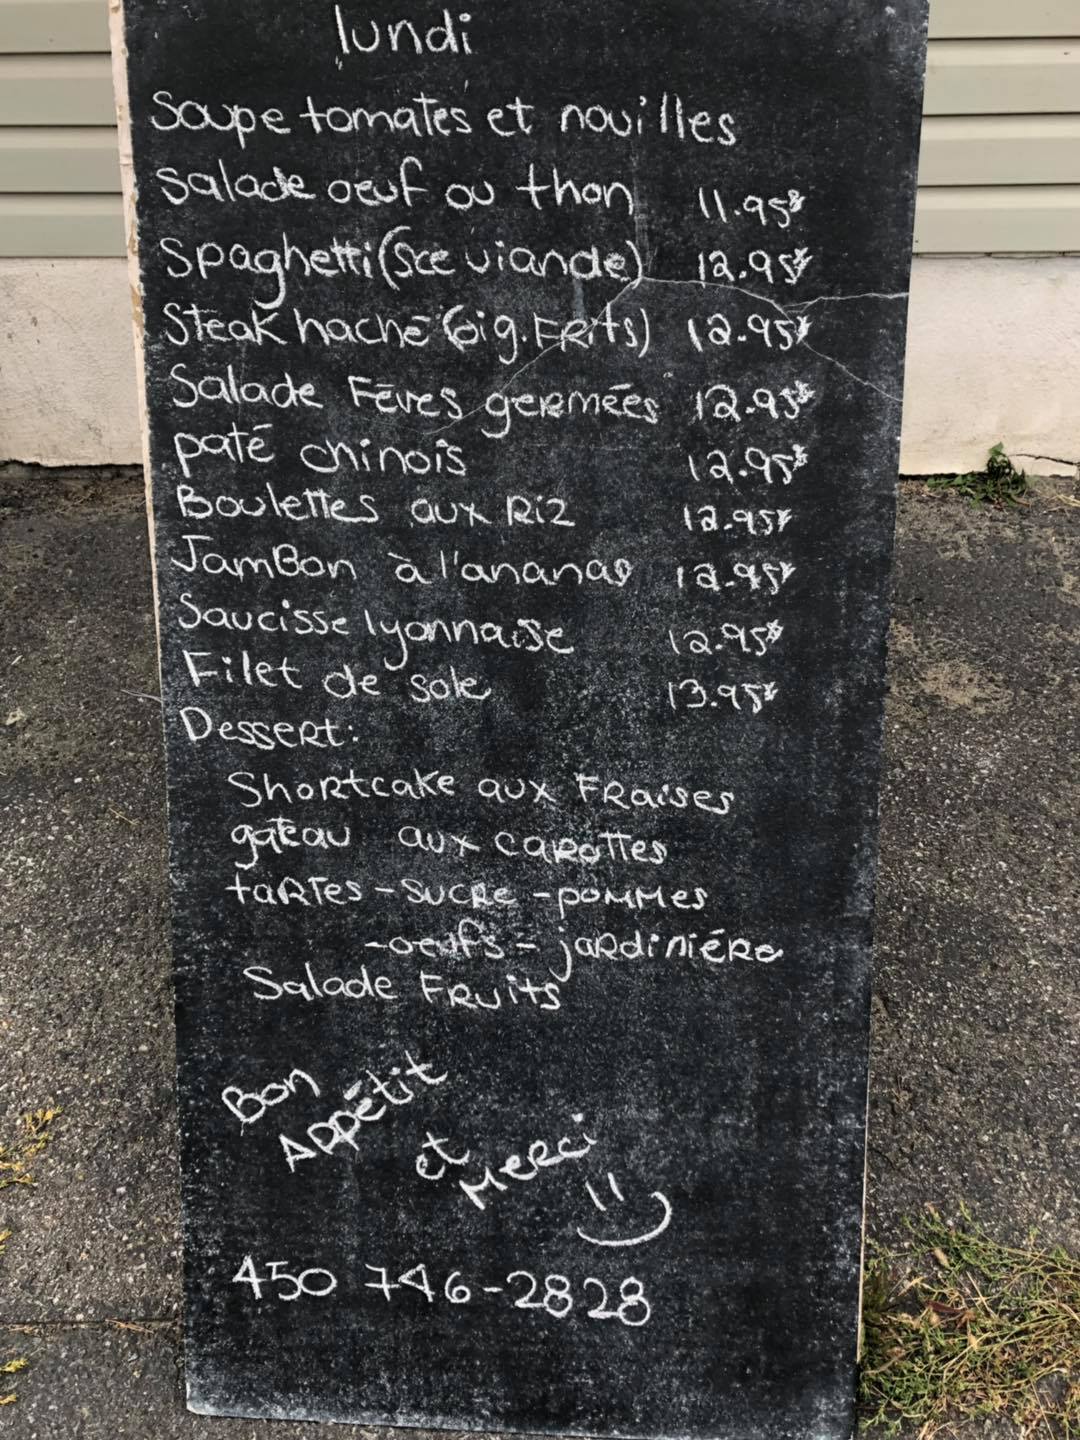 lundi
Soupe tomates et nouilles
Salade oeuf ou thon 11.95$
Spaghetti (Sce viande) 12.95$
Steak haché (oig. Frits) 12.95$
Salade Fèves germées 12.95$
paté chinois 12.95$
Boulettes aux Riz 12.95$
Jambon à l'ananas 12.95$
Saucisse lyonnaise 12.95$
Filet de sole 13.95$
Dessert:
Shortcake aux Fraises
gateau aux carottes
tartes - sucre - pommes
- oeufs - jardiniére
Salade Fruits
Bon
Appétit
et
Merci
450 746-2828